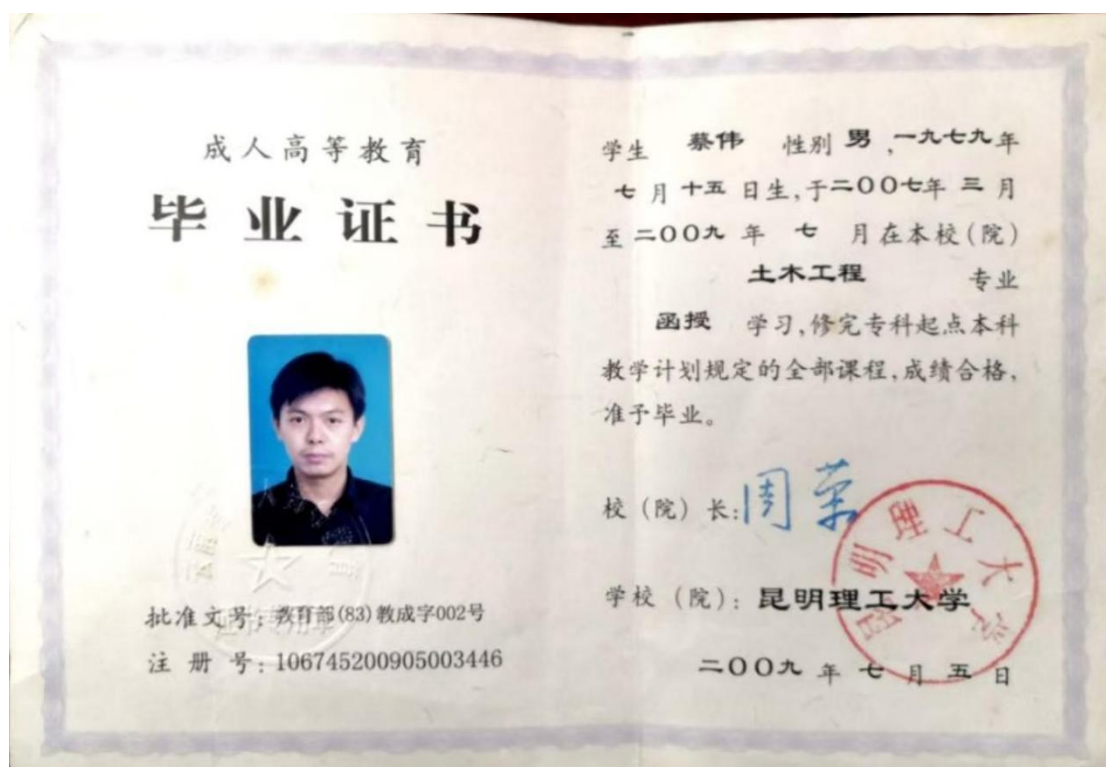 成人高等教育
毕业证书
批准文号：教育部(83)教成字002号
注册号：106745200905003446
学生 蔡伟 性别 男，一九七九年
七月十五日生，于二〇〇七年三月
至二〇〇九年七月在本校(院)
土木工程 专业
函授 学习，修完专科起点本科
教学计划规定的全部课程，成绩合格，
准予毕业。
校（院）长：周荣
学校（院）：昆明理工大学
二〇〇九年七月五日
昆明理工大学